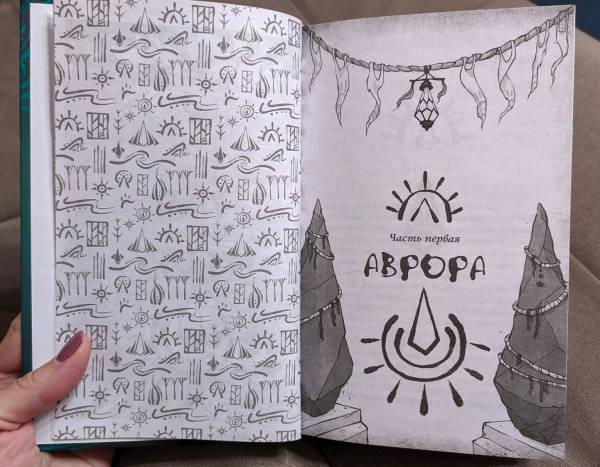 Часть первая
АВРОРА